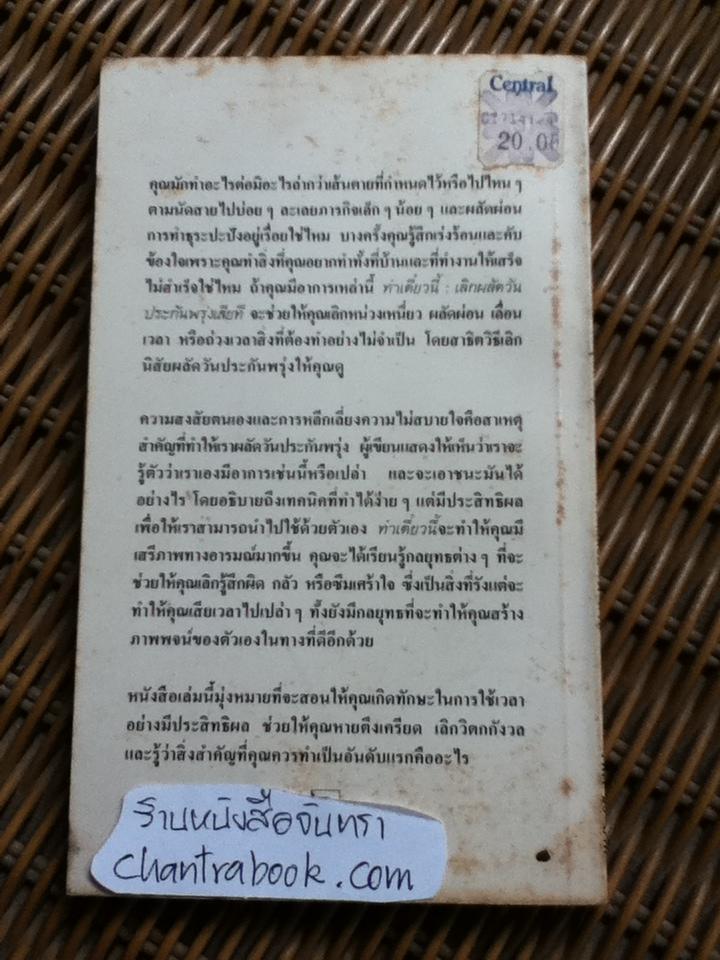 Central
20.0
คุณมักทำอะไรต่อมิอะไรล่ากว่าเส้นตายที่กำหนดไว้หรือไปไหน ๆ
ตามนัดสายไปบ่อย ๆ ละเลยภารกิจเล็ก ๆ น้อย ๆ และผลัดผ่อน
การทำธุระปะปังอยู่เรื่อยใช่ไหม บางครั้งคุณรู้สึกเร่งร้อนและคับ
ข้องใจเพราะคุณทำสิ่งที่คุณอยากทำทั้งที่บ้านและที่ทำงานให้เสร็จ
ไม่สำเร็จใช่ไหม ถ้าคุณมีอาการเหล่านี้ ทำเดี๋ยวนี้ : เลิกผลัดวัน
ประกันพรุ่งเสียที จะช่วยให้คุณเลิกหน่วงเหนี่ยว ผลัดผ่อน เลื่อน
เวลา หรือถ่วงเวลาสิ่งที่ต้องทำอย่างไม่จำเป็น โดยสาธิตวิธีเลิก
นิสัยผลัดวันประกันพรุ่งให้คุณดู
ความสงสัยตนเองและการหลีกเลี่ยงความไม่สบายใจคือสาเหตุ
สำคัญที่ทำให้เราผลัดวันประกันพรุ่ง ผู้เขียนแสดงให้เห็นว่าเราจะ
รู้ตัวว่าเราเองมีอาการเช่นนี้หรือเปล่า และจะเอาชนะมันได้
อย่างไร โดยอธิบายถึงเทคนิคที่ทำได้ง่าย ๆ แต่มีประสิทธิผล
เพื่อให้เราสามารถนำไปใช้ด้วยตัวเอง ทำเดี๋ยวนี้จะทำให้คุณมี
เสรีภาพทางอารมณ์มากขึ้น คุณจะได้เรียนรู้กลยุทธต่าง ๆ ที่จะ
ช่วยให้คุณเลิกรู้สึกผิด กลัว หรือซึมเศร้าใจ ซึ่งเป็นสิ่งที่รังแต่จะ
ทำให้คุณเสียเวลาไปเปล่า ๆ ทั้งยังมีกลยุทธที่จะทำให้คุณสร้าง
ภาพพจน์ของตัวเองในทางที่ดีอีกด้วย
หนังสือเล่มนี้มุ่งหมายที่จะสอนให้คุณเกิดทักษะในการใช้เวลา
อย่างมีประสิทธิผล ช่วยให้คุณหายตึงเครียด เลิกวิตกกังวล
และรู้ว่าสิ่งสำคัญที่คุณควรทำเป็นอันดับแรกคืออะไร
ร้านหนังสือจันทรา
chantrabook.com